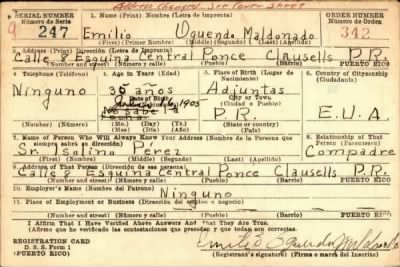 Address Changed See Cover Sheet
SERIAL NUMBER 1. Name (Print) Nombre (Letra de Imprenta) ORDER NUMBER
Número de Serie Número de Orden
247 Emilio Oquendo Maldonado 342
(First) (Primer Nombre) (Middle) (Segundo) (Last) (Apellido)
2. Address (Print) Dirección (Letra de Imprenta)
Calle 8 Esquina Central Ponce Clausells P.R.
(Number and street) (Número y calle) (Town) (Pueblo) (Barrio) PUERTO RICO
3. Telephone (Teléfono) 4. Age in Years (Edad) 5. Place of Birth (Lugar de Nacimiento) 6. Country of Citizenship (Ciudadanía)
Ninguno 36 años Adjuntas
Date of Birth City or Town
1905 (Ciudad o Pueblo)
No sabe P.R. E.U.A.
(Number) (Número) (Mo.) (Day) (Yr.) (State or country)
(Mes) (Día) (Año) (Estado o país)
7. Name of Person Who Will Always Know Your Address (Nombre de la Persona que siempre sabrá su dirección) 8. Relationship of That Person (Parentesco)
Sr. Isolin Perez Compadre
(First) (Nombre) (Middle) (Segundo) (Last) (Apellido)
9. Address of That Person (Dirección de esa persona)
Calle 8 Esquina Central Ponce Clausells P.R.
(Number and street) (Número y calle) (Town) (Pueblo) (Barrio) PUERTO RICO
10. Employer's Name (Nombre del Patrono)
Ninguno
11. Place of Employment or Business (Dirección del empleo o negocio)
(Number and street) (Número y calle) (Town) (Pueblo) (Barrio) PUERTO RICO
I Affirm That I Have Verified Above Answers And That They Are True.
(Afirmo que he verificado las contestaciones que preceden y que todas son correctas.
REGISTRATION CARD
D. S. S. Form 1
(PUERTO RICO)
Emilio Oquendo Maldonado
(Registrant's signature) (Firma o marca del inscrito)